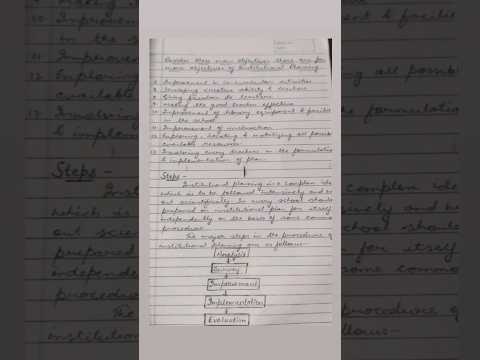 Besides these main objectives there are few
more objectives of Institutional Planning
5 Improvement in co-curricular activities
6 Developing creative ability of teachers
8 Giving freedom to teachers
9 Making the good teacher effective
10 Improvement of library equipment & facilities
in the school
11 Improvement of instruction
12 Exploring, locating & mobilizing all possible
available resources
13 Involving every teacher in the formulation
& implementation of plan.
Steps -
Institutional planning is a complex idea
which is to be followed intensively and be
out scientifically. So every school should
prepared an institutional plan for itself
independently on the basis of some common
procedure.
The major steps in the procedure of
institutional planning are as follows -
Analysis
Survey
Improvement
Implementation
Evaluation